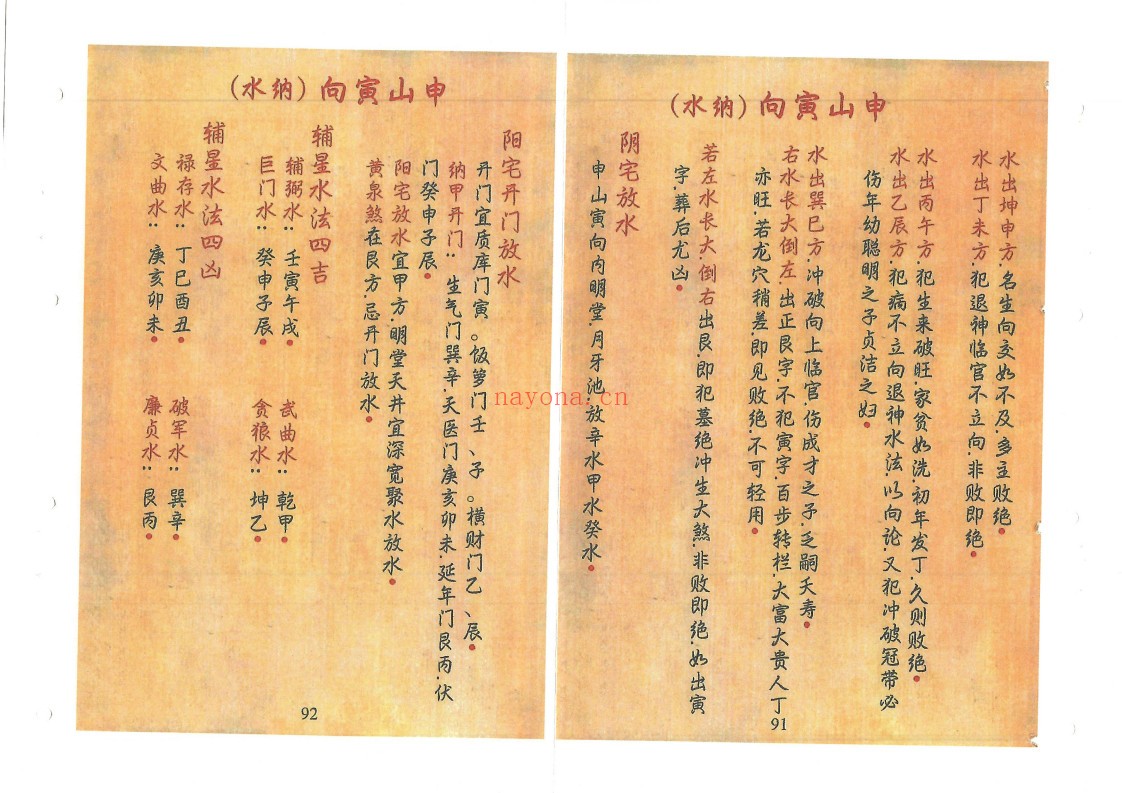 申山寅向（纳水）
水出坤申方.名生向交如不及.多主败绝.
水出丁未方.犯退神临官不立向.非败即绝.
水出丙午方.犯生来破旺.家贫如洗.初年发丁.久则败绝.
水出乙辰方.犯病不立向退神水法.以向论.又犯冲破冠带必
伤年幼聪明之子贞洁之妇.
水出巽巳方.冲破向上临官.伤成才之子.乏嗣夭寿.
右水长大倒左.出正艮字.不犯寅字.百步转栏.大富大贵人丁
亦旺.若龙穴稍差即见败绝.不可轻用.
若左水长大.倒右出艮.即犯墓绝冲生大煞.非败即绝.如出寅
字.葬后尤凶.
阴宅放水
申山寅向内明堂.月牙池.放辛水甲水癸水.
91
申山寅向（纳水）
阳宅开门放水
开门宜质库门寅。饭箩门壬、子。横财门乙、辰.
纳甲开门：生气门巽辛.天医门庚亥卯未.延年门艮丙.伏
门癸申子辰.
阳宅放水宜甲方.明堂天井宜深宽聚水放水.
黄泉煞在艮方.忌开门放水.
辅星水法四吉
辅弼水：壬寅午戌. 武曲水：乾甲.
巨门水：癸申子辰. 贪狼水：坤乙.
辅星水法四凶
禄存水：丁巳酉丑. 破军水：巽辛.
文曲水：庚亥卯未. 廉贞水：艮丙.
92
nayona.cn